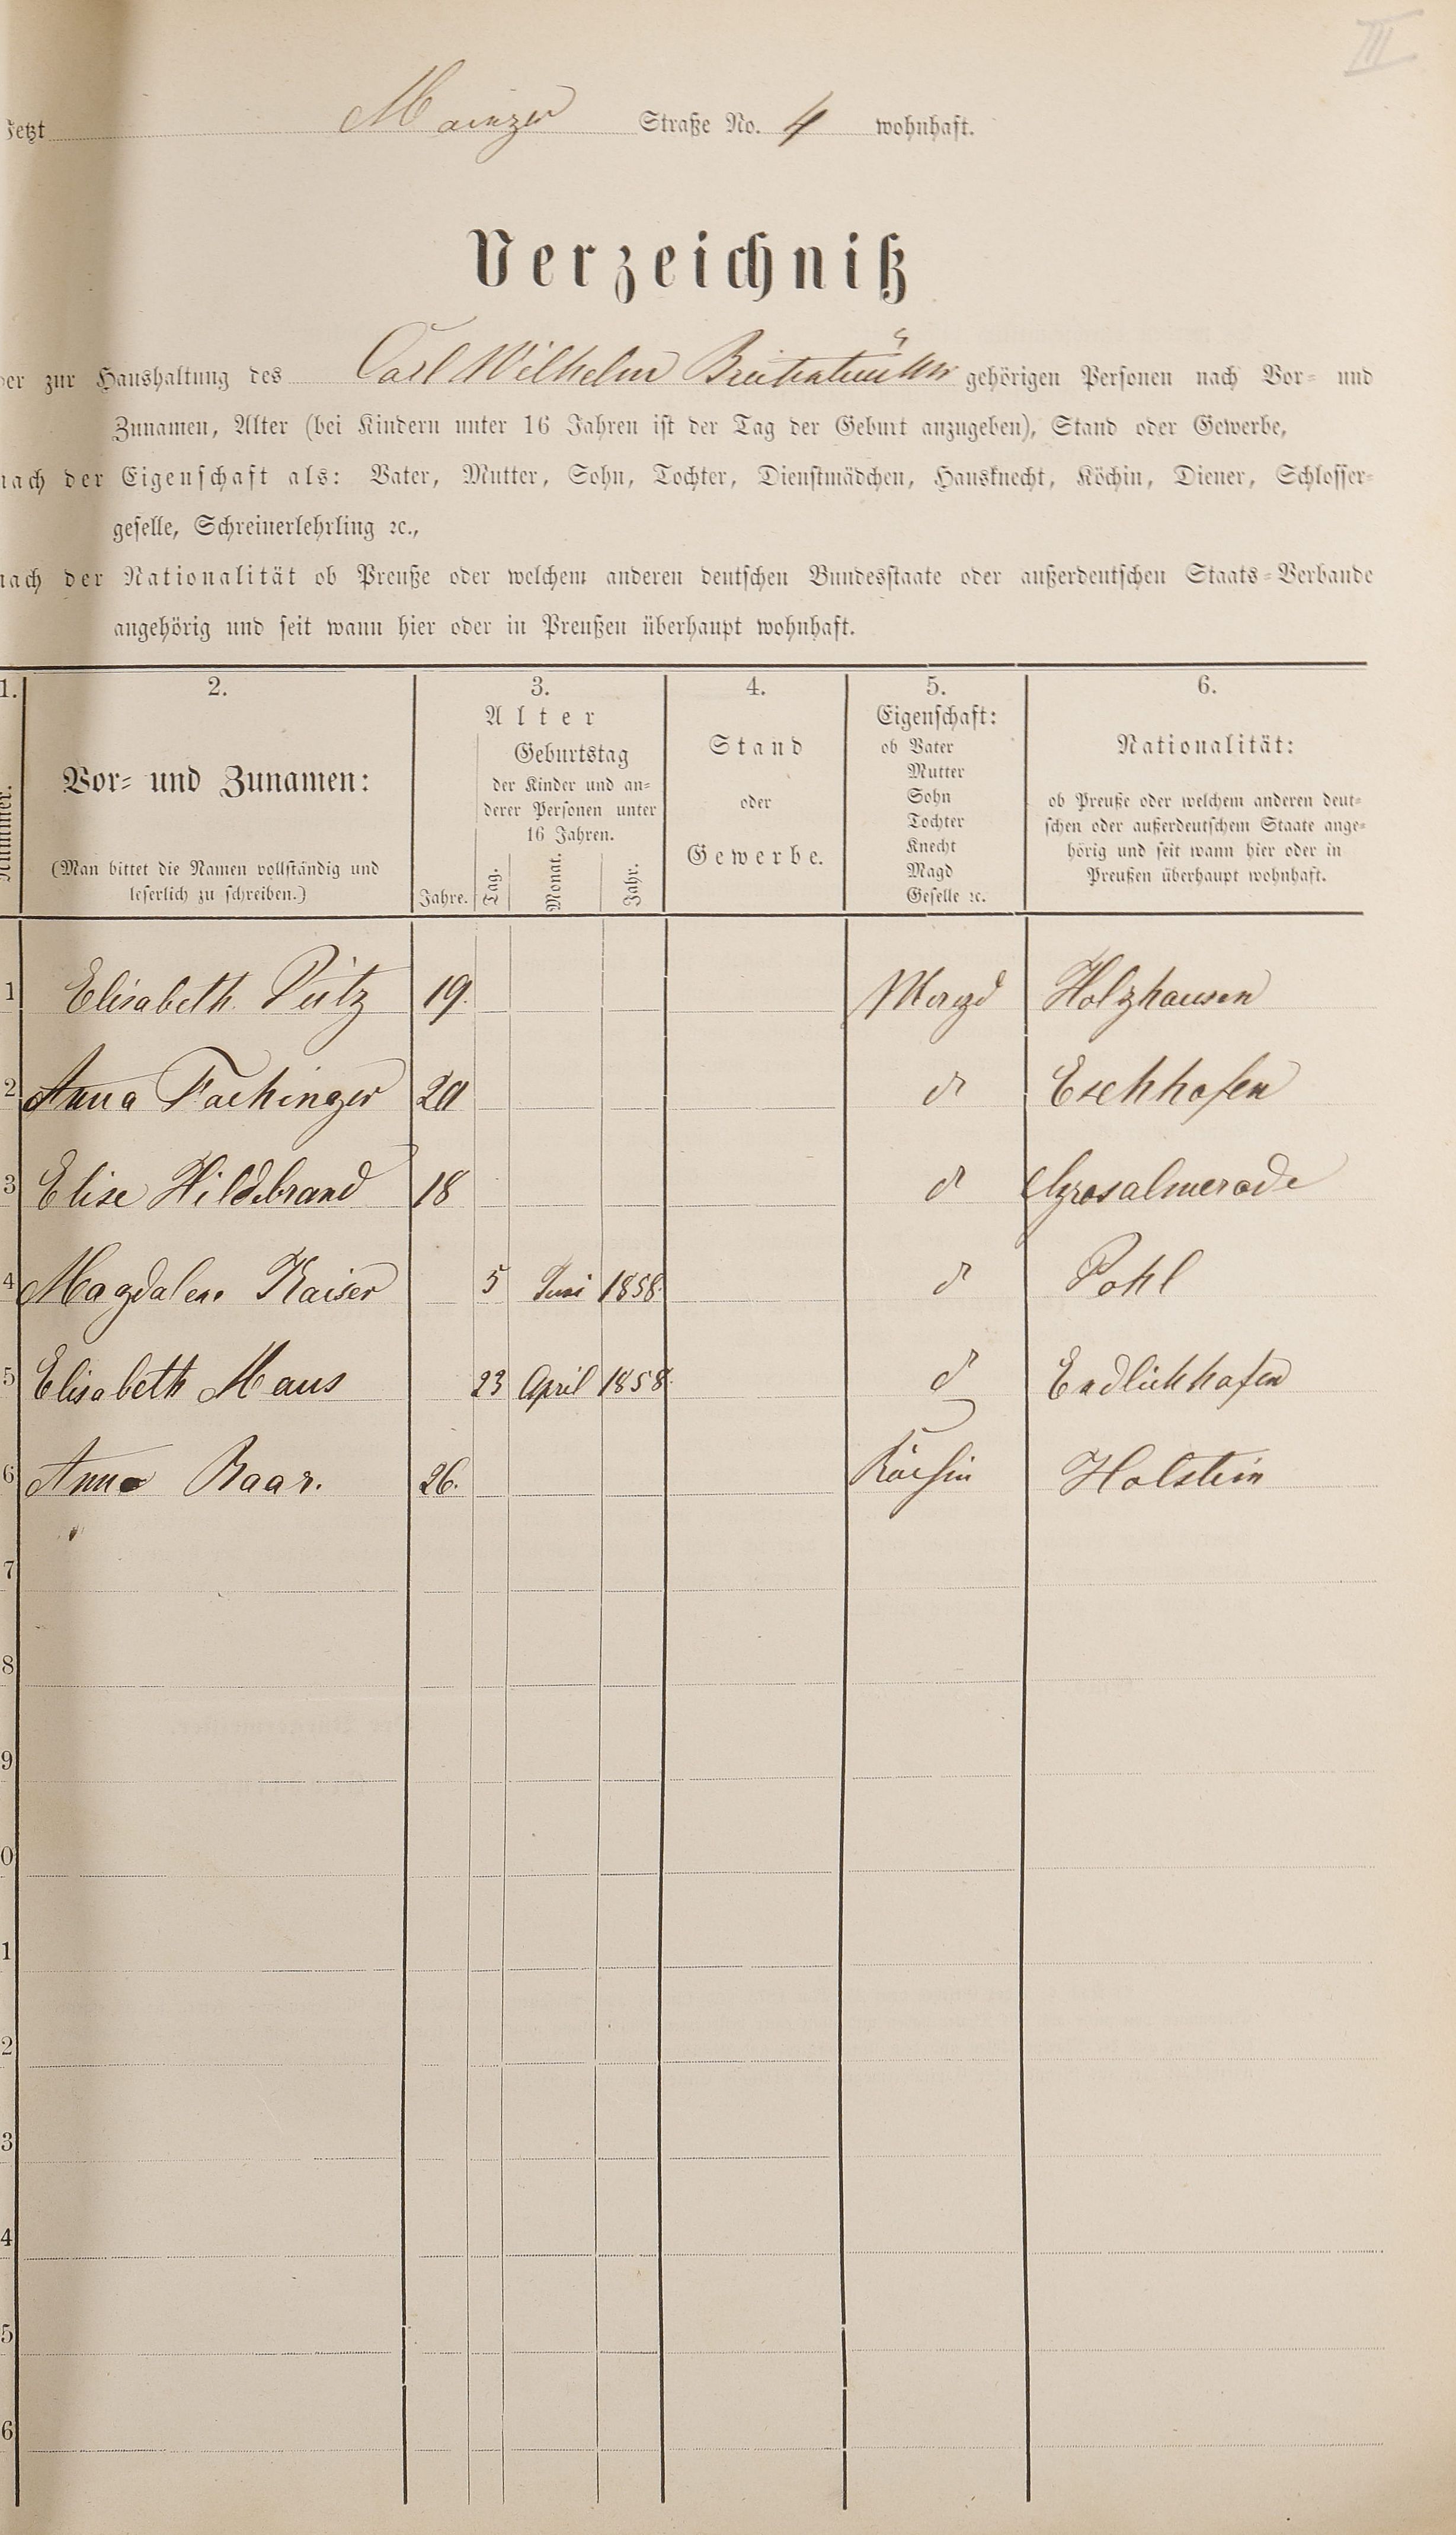 III
Jetzt Mainzer Straße No. 4 wohnhaft.
Verzeichniß
der zur Haushaltung des Carl Wilhelm gehörigen Personen nach Vor- und
Zunamen, Alter (bei Kindern unter 16 Jahren ist der Tag der Geburt anzugeben), Stand oder Gewerbe,
nach der Eigenschaft als: Vater, Mutter, Sohn, Tochter, Dienstmädchen, Hausknecht, Köchin, Diener, Schlosser-
geselle, Schreinerlehrling ꝛc.,
nach der Nationalität ob Preuße oder welchem anderen deutschen Bundesstaate oder außerdeutschen Staats-Verbande
angehörig und seit wann hier oder in Preußen überhaupt wohnhaft.
1. 2. 3. 4. 5. 6.
Nummer.
Vor- und Zunamen:
(Man bittet die Namen vollständig und
leserlich zu schreiben.)
Alter
Jahre.
Geburtstag
der Kinder und an-
derer Personen unter
16 Jahren.
Tag. Monat. Jahr.
Stand
oder
Gewerbe.
Eigenschaft:
ob Vater
Mutter
Sohn
Tochter
Knecht
Magd
Geselle ꝛc.
Nationalität:
ob Preuße oder welchem anderen deut-
schen oder außerdeutschem Staate ange-
hörig und seit wann hier oder in
Preußen überhaupt wohnhaft.
1 Elisabeth Pütz 19. Magd Holzhausen
2 Anna Fachinger 20 d Eschhofen
3 Elise Hildebrand 18 d Grosalmerode
4 Magdalene Kaiser 5 Juni 1858. d Pohl
5 Elisabeth Maus 23 April 1858. d Endlichhofen
6 Anna Baar. 26. Köchin Holstein
7
8
9
0
1
2
3
4
5
6